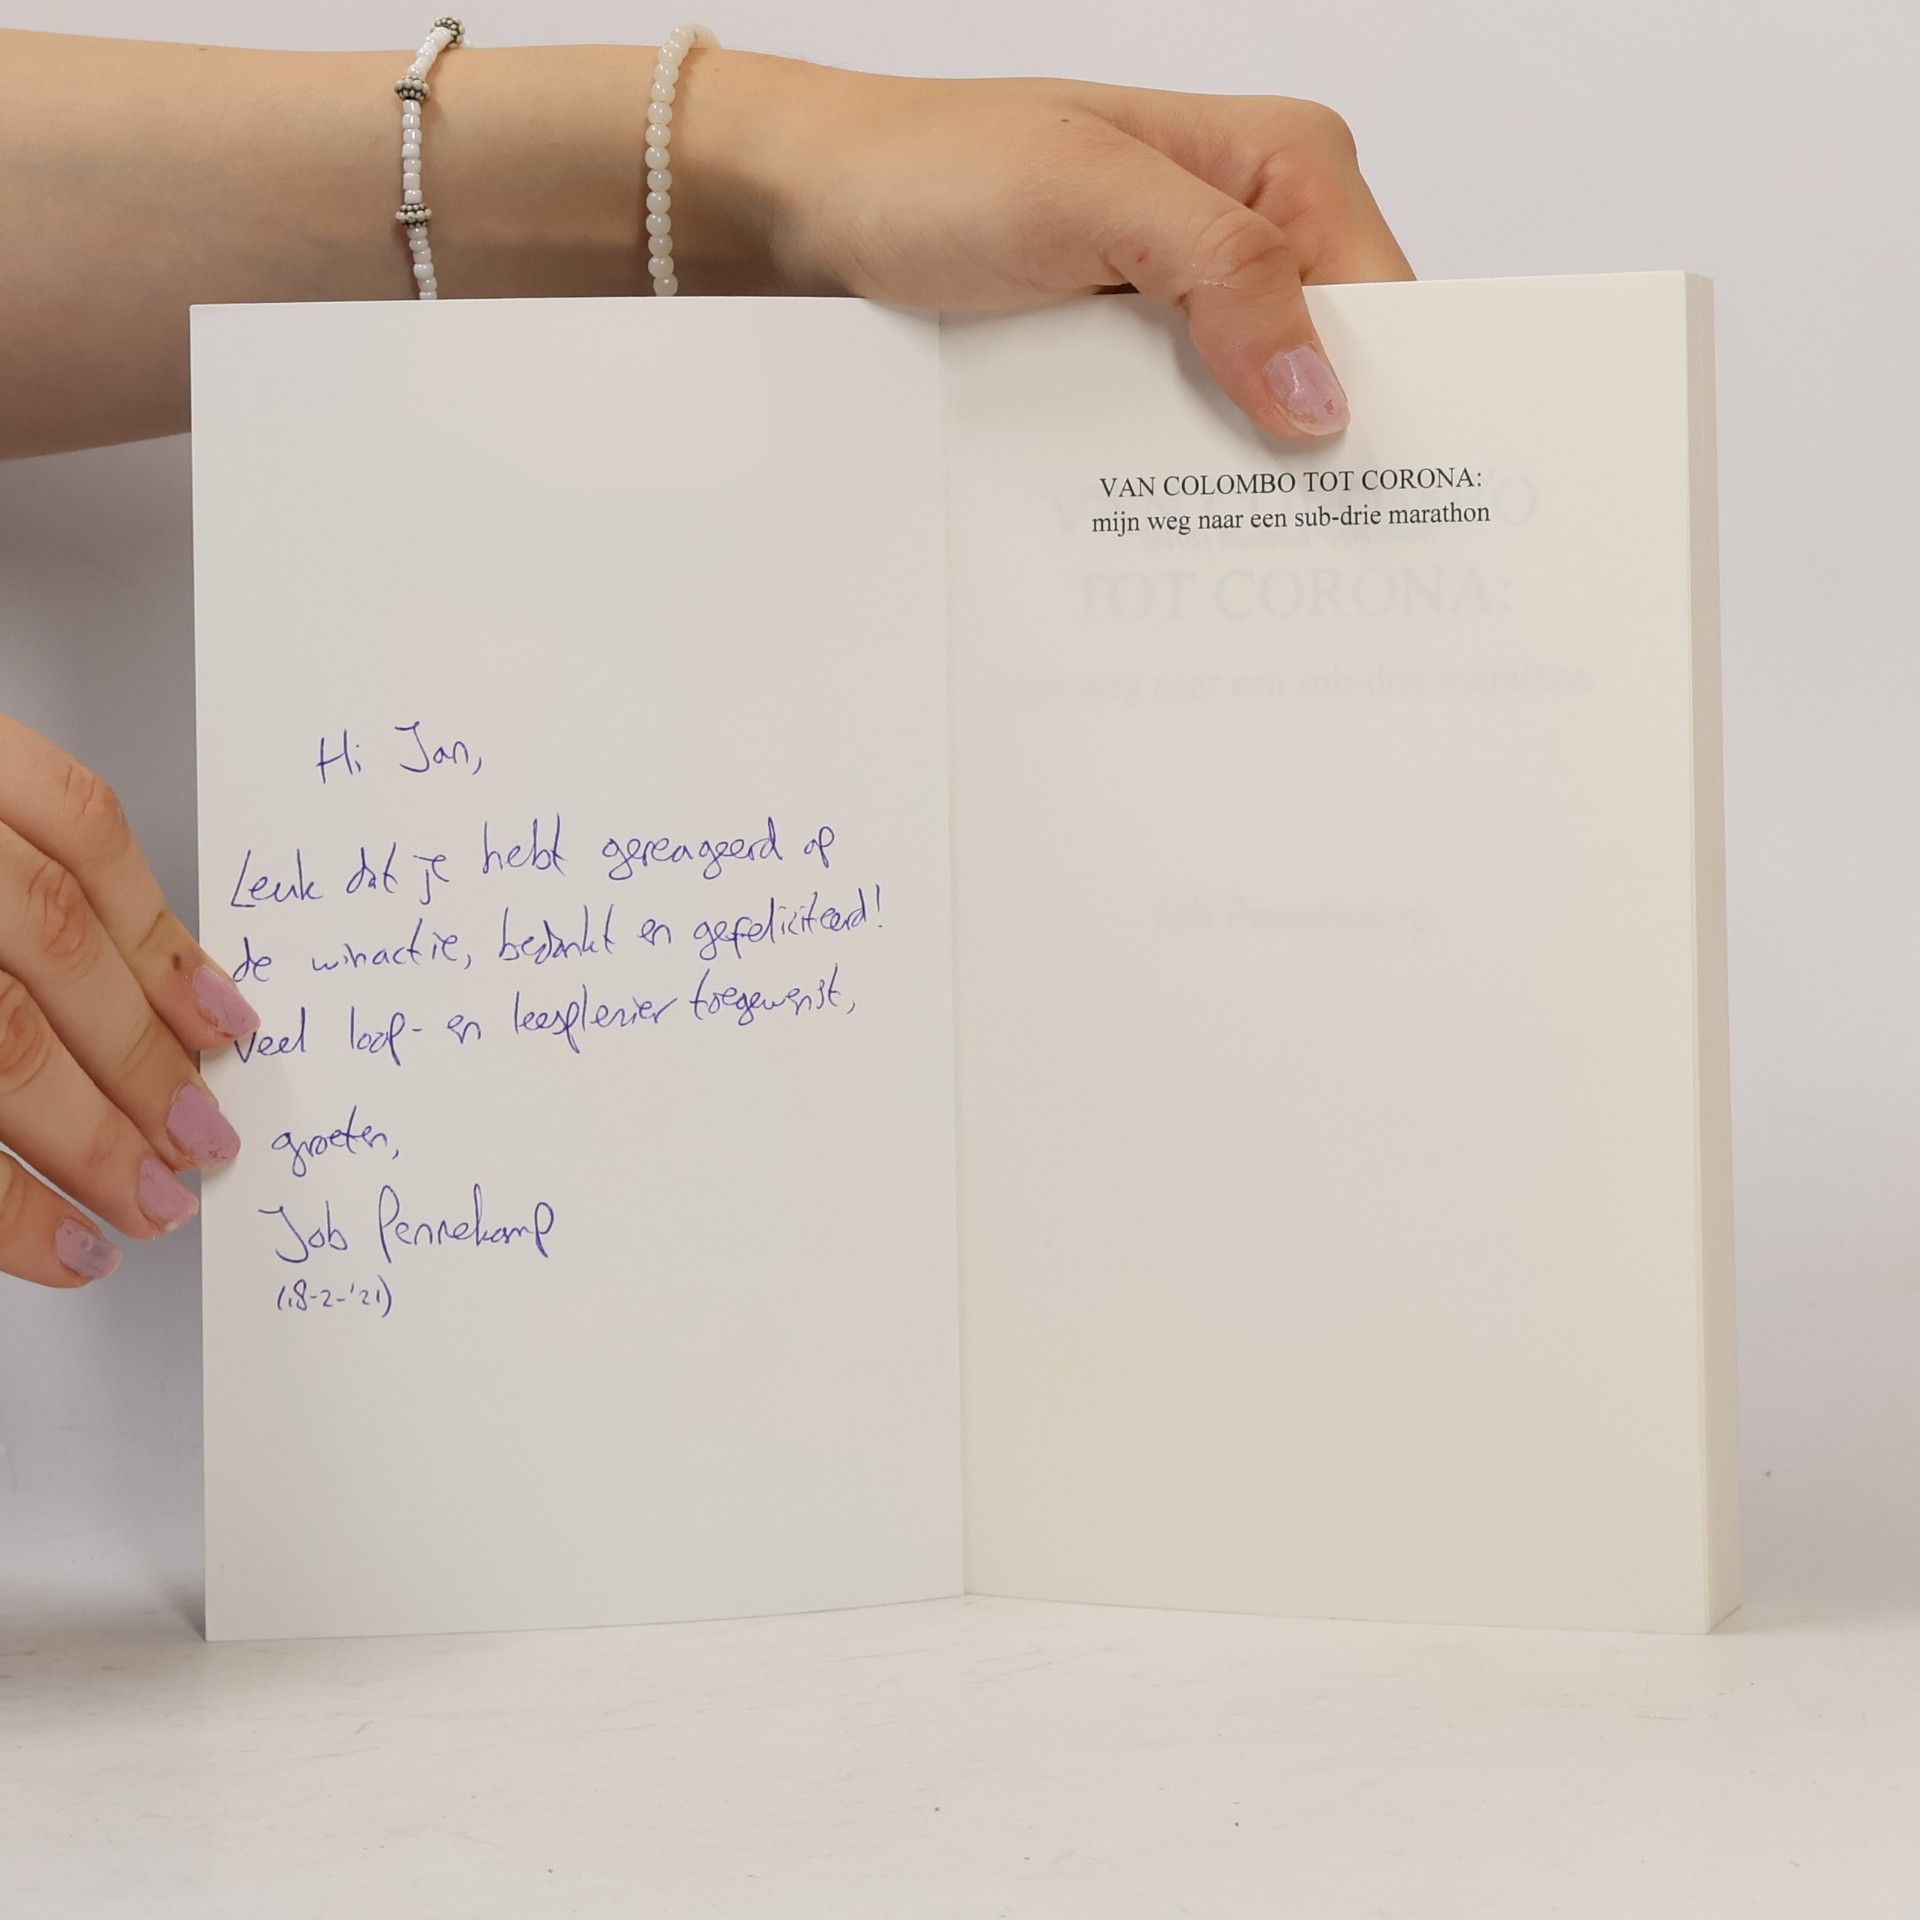 Hi Jan,
Leuk dat je hebt gereageerd op
de winactie, bedankt en gefeliciteerd!
Veel loop- en leesplezier toegewenst,
groeten,
Job Pennekamp
(18-2-'21)
VAN COLOMBO TOT CORONA:
mijn weg naar een sub-drie marathon
TOT CORONA:
mijn weg naar een sub-drie marathon